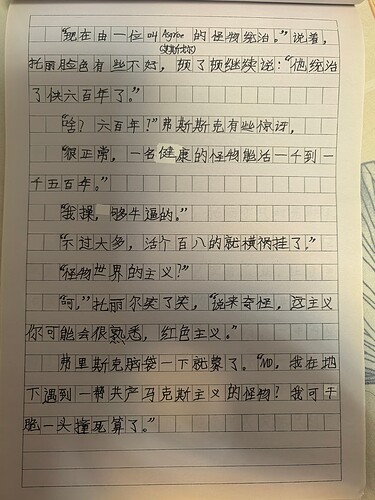 “现在由一位叫 Agree 的怪物统治。”说着，
托丽脸色有些不好，顿了顿继续说：“他统治
了快六百年了。”
“啥？六百年？”弗斯斯克有些惊讶，
“很正常，一名健康的怪物能活一千到一
千五百年。”
“我操，够牛逼的。”
“不过大多，活个百八的就横祸挂了。”
“怪物世界的主义？”
“呵，”托丽尔笑了笑，“说来奇怪，这主义
你可能会很熟悉，红色主义。”
弗里斯克脑袋一下就蒙了。“No，我在地
下遇到一帮共产马克斯主义的怪物？我可干
脆一头撞死算了。”